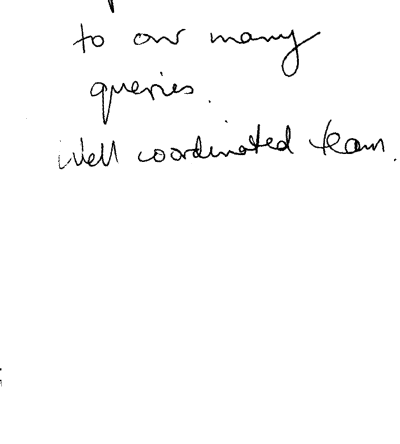 to our many
queries.
Well coordinated team.